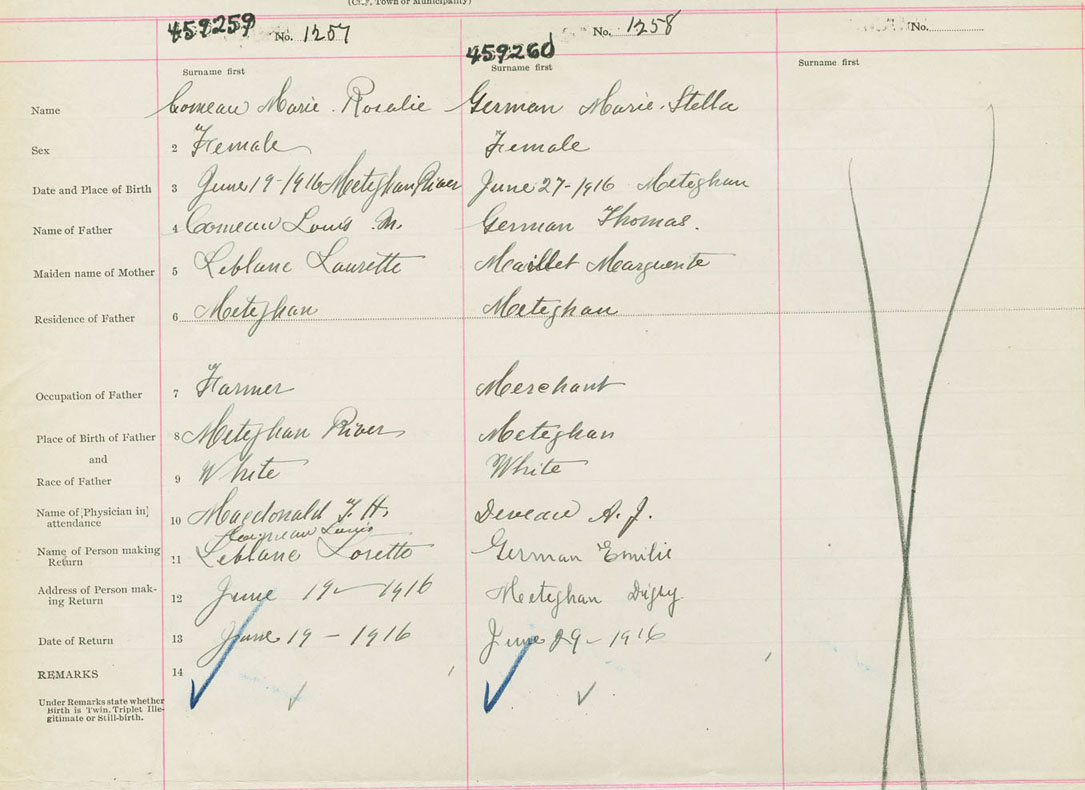 (City, Town or Municipality)
459259 No. 1257
459260 No. 1258
No.
Surname first
Surname first
Surname first
Name Comeau Marie Rosalie German Marie Stella
Sex 2 Female Female
Date and Place of Birth 3 June 19-1916 Meteghan River June 27-1916 Meteghan
Name of Father 4 Comeau Louis M. German Thomas.
Maiden name of Mother 5 Leblanc Laurette Maillet Marguerite
Residence of Father 6 Meteghan Meteghan
Occupation of Father 7 Farmer Merchant
Place of Birth of Father 8 Meteghan River Meteghan
and
Race of Father 9 White White
Name of [Physician in] attendance 10 Macdonald F. H. Deveau A. J.
Comeau Louis
Name of Person making Return 11 Leblanc Loretto German Emilie
Address of Person mak-ing Return 12 June 19 - 1916 Meteghan Digby
Date of Return 13 June 19 - 1916 June 29 - 1916
REMARKS 14
Under Remarks state whether
Birth is Twin, Triplet Ille-
gitimate or Still-birth.